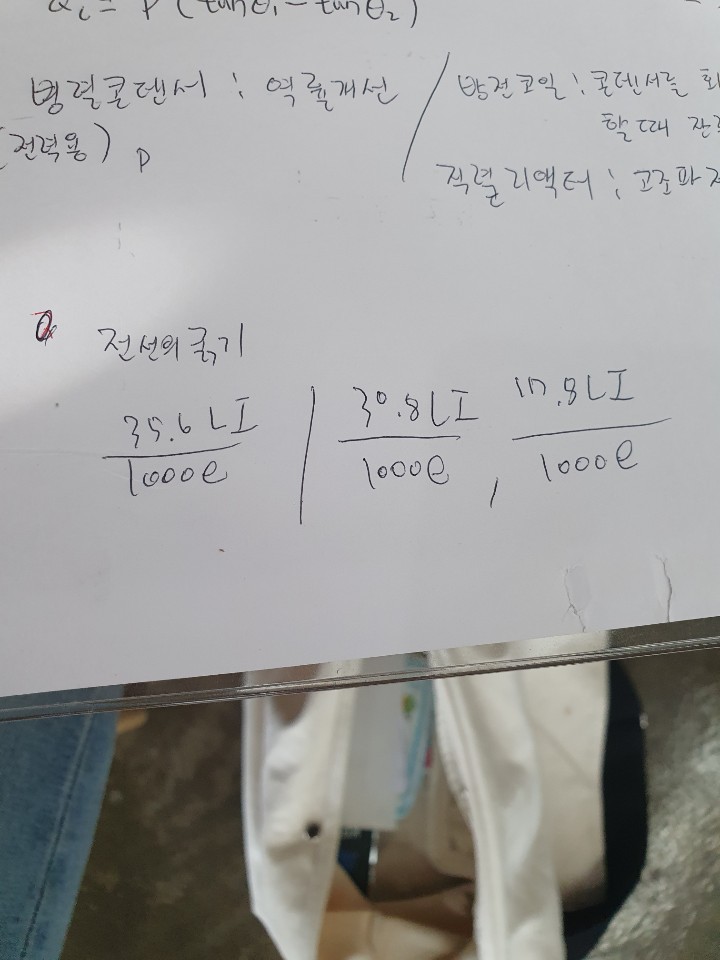 Qc = P (tanθ₁ - tanθ₂)
병렬콘덴서 : 역률개선
(전력용) P
방전코일 : 콘덴서를
할 때
직렬리액터 : 고조파
전선의 굵기
35.6LI / 1000e | 30.8LI / 1000e , 17.8LI / 1000e